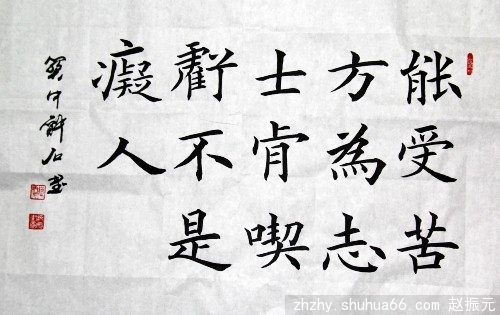 能受苦
方為志
士肯喫
虧不是
癡人
zhzhy.shuhua66.com 赵振元